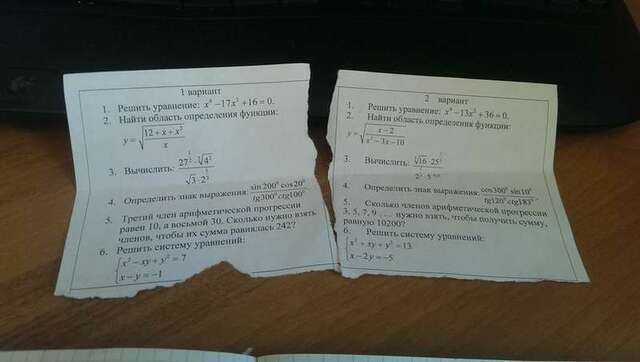 1 вариант
1. Решить уравнение: x⁴ −17x² +16 = 0.
2. Найти область определения функции:
y = √((12 + x + x²)/x)
3. Вычислить:
4. Определить знак выражения: sin 200⁰ cos 20⁰ / tg300⁰ ctg100⁰
5. Третий член арифметической прогрессии
равен 10, а восьмой 30. Сколько нужно взять
членов, чтобы их сумма равнялась 242?
6. Решить систему уравнений:
{x² − xy + y² = 7
{x − y = −1
2 вариант
1. Решить уравнение: x⁴ −13x² + 36 = 0.
2. Найти область определения функции:
y = √((x − 2)/(x² − 3x − 10))
3. Вычислить:
4. Определить знак выражения: cos300⁰ sin10⁰ / tg120⁰ ctg183⁰
5. Сколько членов арифметической прогрессии
3, 5, 7, 9 . . . нужно взять, чтобы получить сумму,
равную 10200?
6. Решить систему уравнений:
{x² + xy + y² = 13
{x − 2y = −5